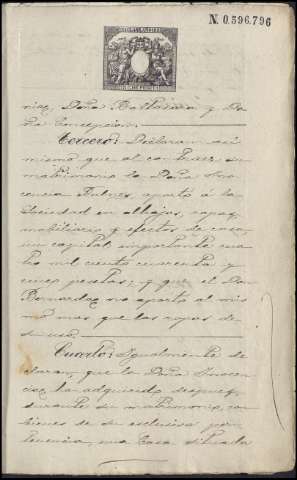 N. 0.596.796
nia, Doña Bathasara y Do-
ña Concepcion.
Tercero: Declaran asi
mismo que al contraer su
matrimonio la Doña Ino-
cencia Fulnes, aportó á la
Sociedad en alhajas, ropas,
mobiliario y efectos de casa,
un capital importante cua-
tro mil ciento cincuenta y
cinco pesetas; y que el Don
Bernardo no aportó al mis
mo mas que las ropas de
su uso.
Cuarto: Igualmente de-
claran, que la Doña Inocen-
cia, ha adquirido despues,
durante su matrimonio, con
bienes de su esclusiva per-
tenencia, una Casa situada